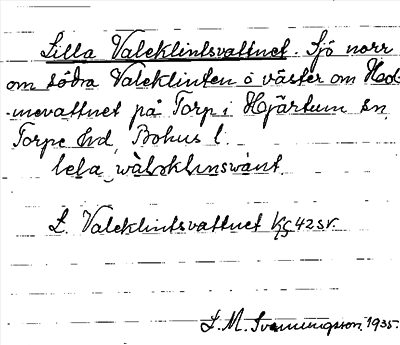 Lilla Valeklintsvattnet. Sjö norr
om södra Valeklinten o väster om Hol-
-mevattnet på Torp i Hjärtum sn
Torpe hd, Bohus l.
lela
L. Valeklintsvattnet Kg 42 sv.
L. M. Svenungsson 1935.